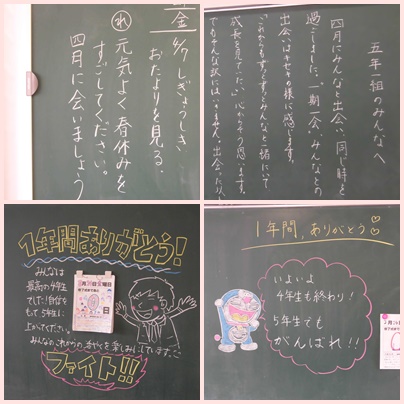 金
4/7 しぎょうしき
おたよりを見る.
れ 元気よく春休みを
すごしてください。
四月に会いましょう
五年一組のみんなへ
四月にみんなと出会い、同じ時を
過ごしました。一期一会、みんなとの
出会いはキセキの様に感じます。
これからもずっとずっとみんなと一緒にいて
成長を見ていたい。心からそう思います。
でもそんな訳にはいきません。出会った以上
1年間ありがとう!
みんなは
最高の4年生
でした!自信を
もって5年生に
上がってください。
みんなのこれからの
を楽しみにしています
ファイト!!
1年間,ありがとう
いよいよ
4年生も終わり!
5年生でも
がんばれ!!